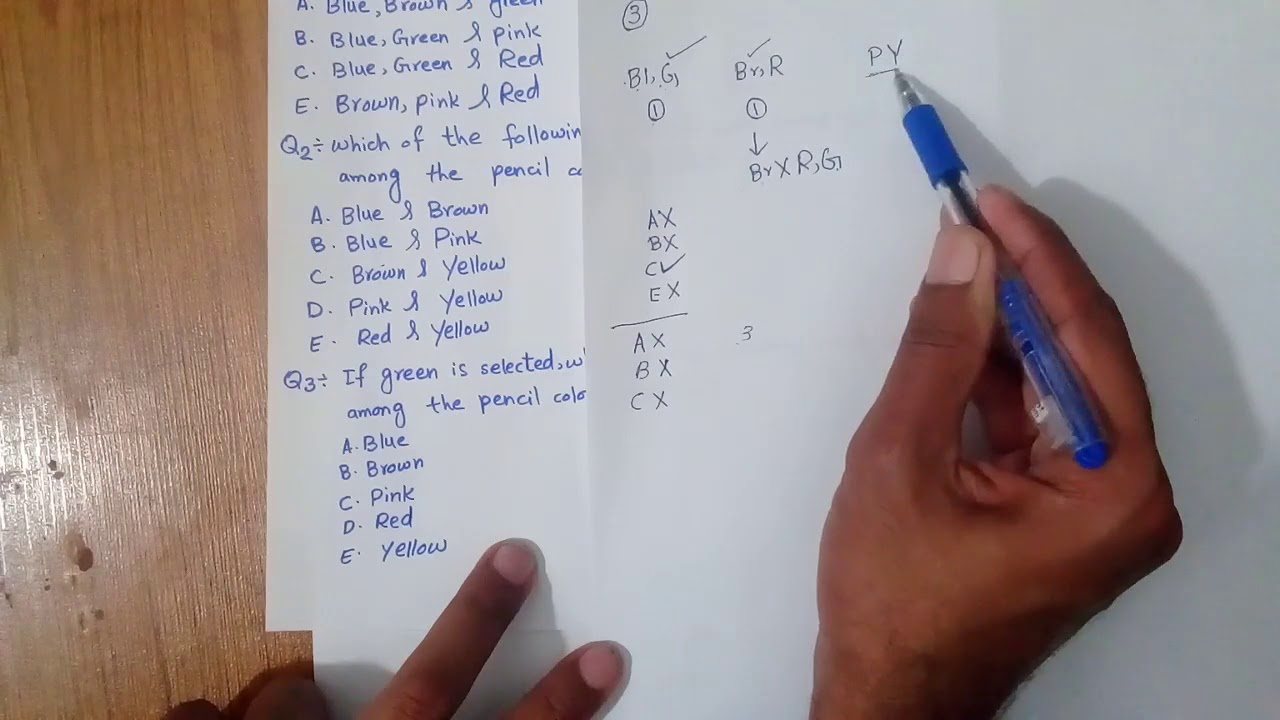 A. Blue, Brown & green
B. Blue, Green & pink
C. Blue, Green & Red
E. Brown, pink & Red
Q2÷ which of the followin
among the pencil
A. Blue & Brown
B. Blue & Pink
C. Brown & Yellow
D. Pink & Yellow
E. Red & Yellow
Q3÷ If green is selected, w
among the pencil colo
A. Blue
B. Brown
C. Pink
D. Red
E. Yellow
3
Bl, G, ✓ Br, R ✓ PY
1 1
↓
Br X R, G
A X
B X
C ✓
E X
A X 3
B X
C X